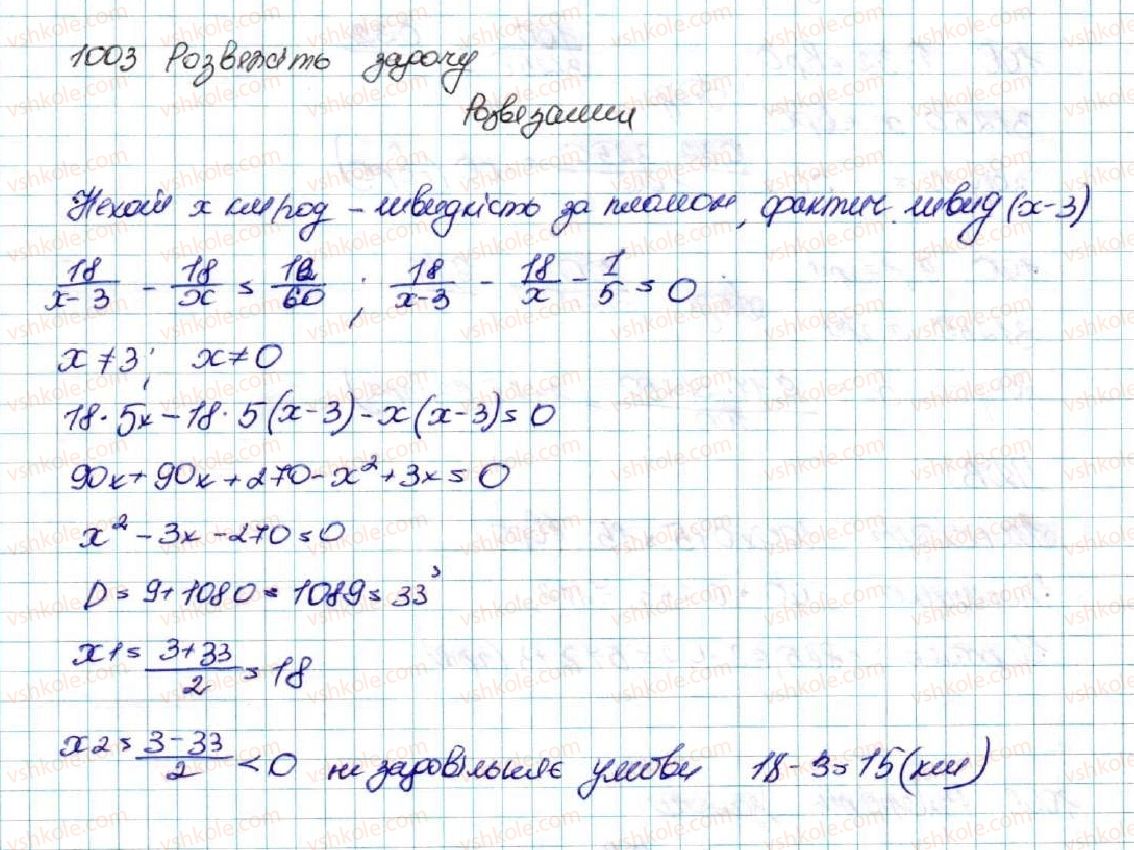 1003 Розвяжіть задачу
Розвязання
Нехай x км/год – швидкість за планом, фактич. швид (x-3)
18/(x-3) - 18/x = 12/60 ; 18/(x-3) - 18/x - 1/5 = 0
x ≠ 3; x ≠ 0
18·5x - 18·5(x-3) - x(x-3) = 0
90x + 90x + 270 - x² + 3x = 0
x² - 3x - 270 = 0
D = 9 + 1080 = 1089 = 33³
x1 = (3+33)/2 = 18
x2 = (3-33)/2 < 0 не задовільняє умови 18-3=15(км)